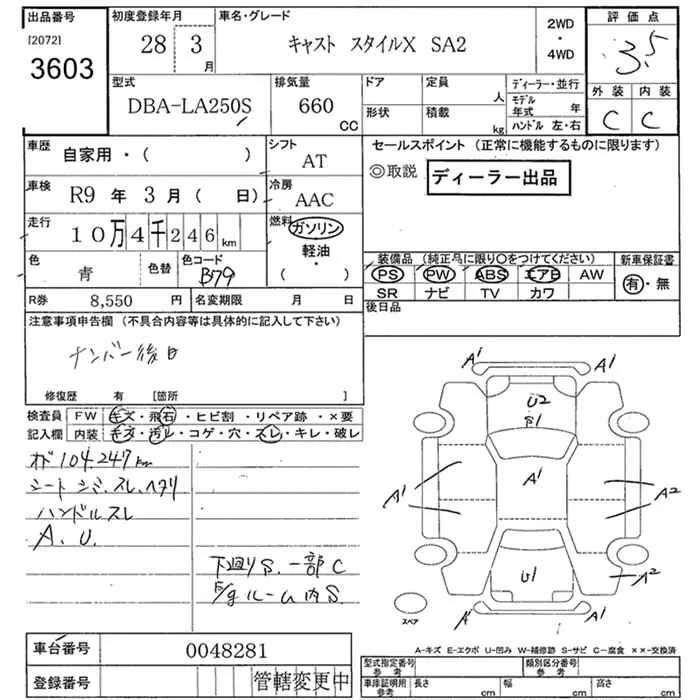 出品番号
[2072]
3603
初度登録年月
28 3
月
車名・グレード
キャスト スタイルX SA2
2WD
・
4WD
評価点
3.5
外装 内装
C C
型式
DBA-LA250S
排気量
660
CC
ドア
定員
人
形状
積載
kg
ディーラー・並行
モデル
年式 年
ハンドル 左・右
車歴
自家用・( )
シフト
AT
車検
R9 年 3 月( 日)
冷房
AAC
走行
10万4千246km
燃料
ガソリン
軽油・
( )
色
青
色替
色コード
B79
R券 8,550 円
名変期限 月 日
セールスポイント (正常に機能するものに限ります)
◎取説 ディーラー出品
装備品 (純正品に限り○をつけてください)
PS PW ABS エアB AW
SR ナビ TV カワ
新車保証書
有・無
後日品
注意事項申告欄 (不具合内容等は具体的に記入して下さい)
ナンバー後日
修復歴 有 [箇所 ]
検査員 FW キズ・飛石・ヒビ割・リペア跡・×要
記入欄 内装 キズ・汚レ・コゲ・穴・スレ・キレ・破レ
104.247km
シート シミ.スレ.ヘタリ
ハンドルスレ
A. U.
下廻りS. 一部C
ルーム内S.
A1 A1
U2
S1
A1
A1 A2
A1 A2
U1
A2
A1
スペア
A-キズ E-エクボ U-凹み W-補修跡 S-サビ C-腐食 ××-交換済
車台番号 0048281
登録番号 管轄変更中
型式指定番号
参考
類別区分番号
参考
車庫証明用
参考
長さ cm 幅 cm 高さ cm